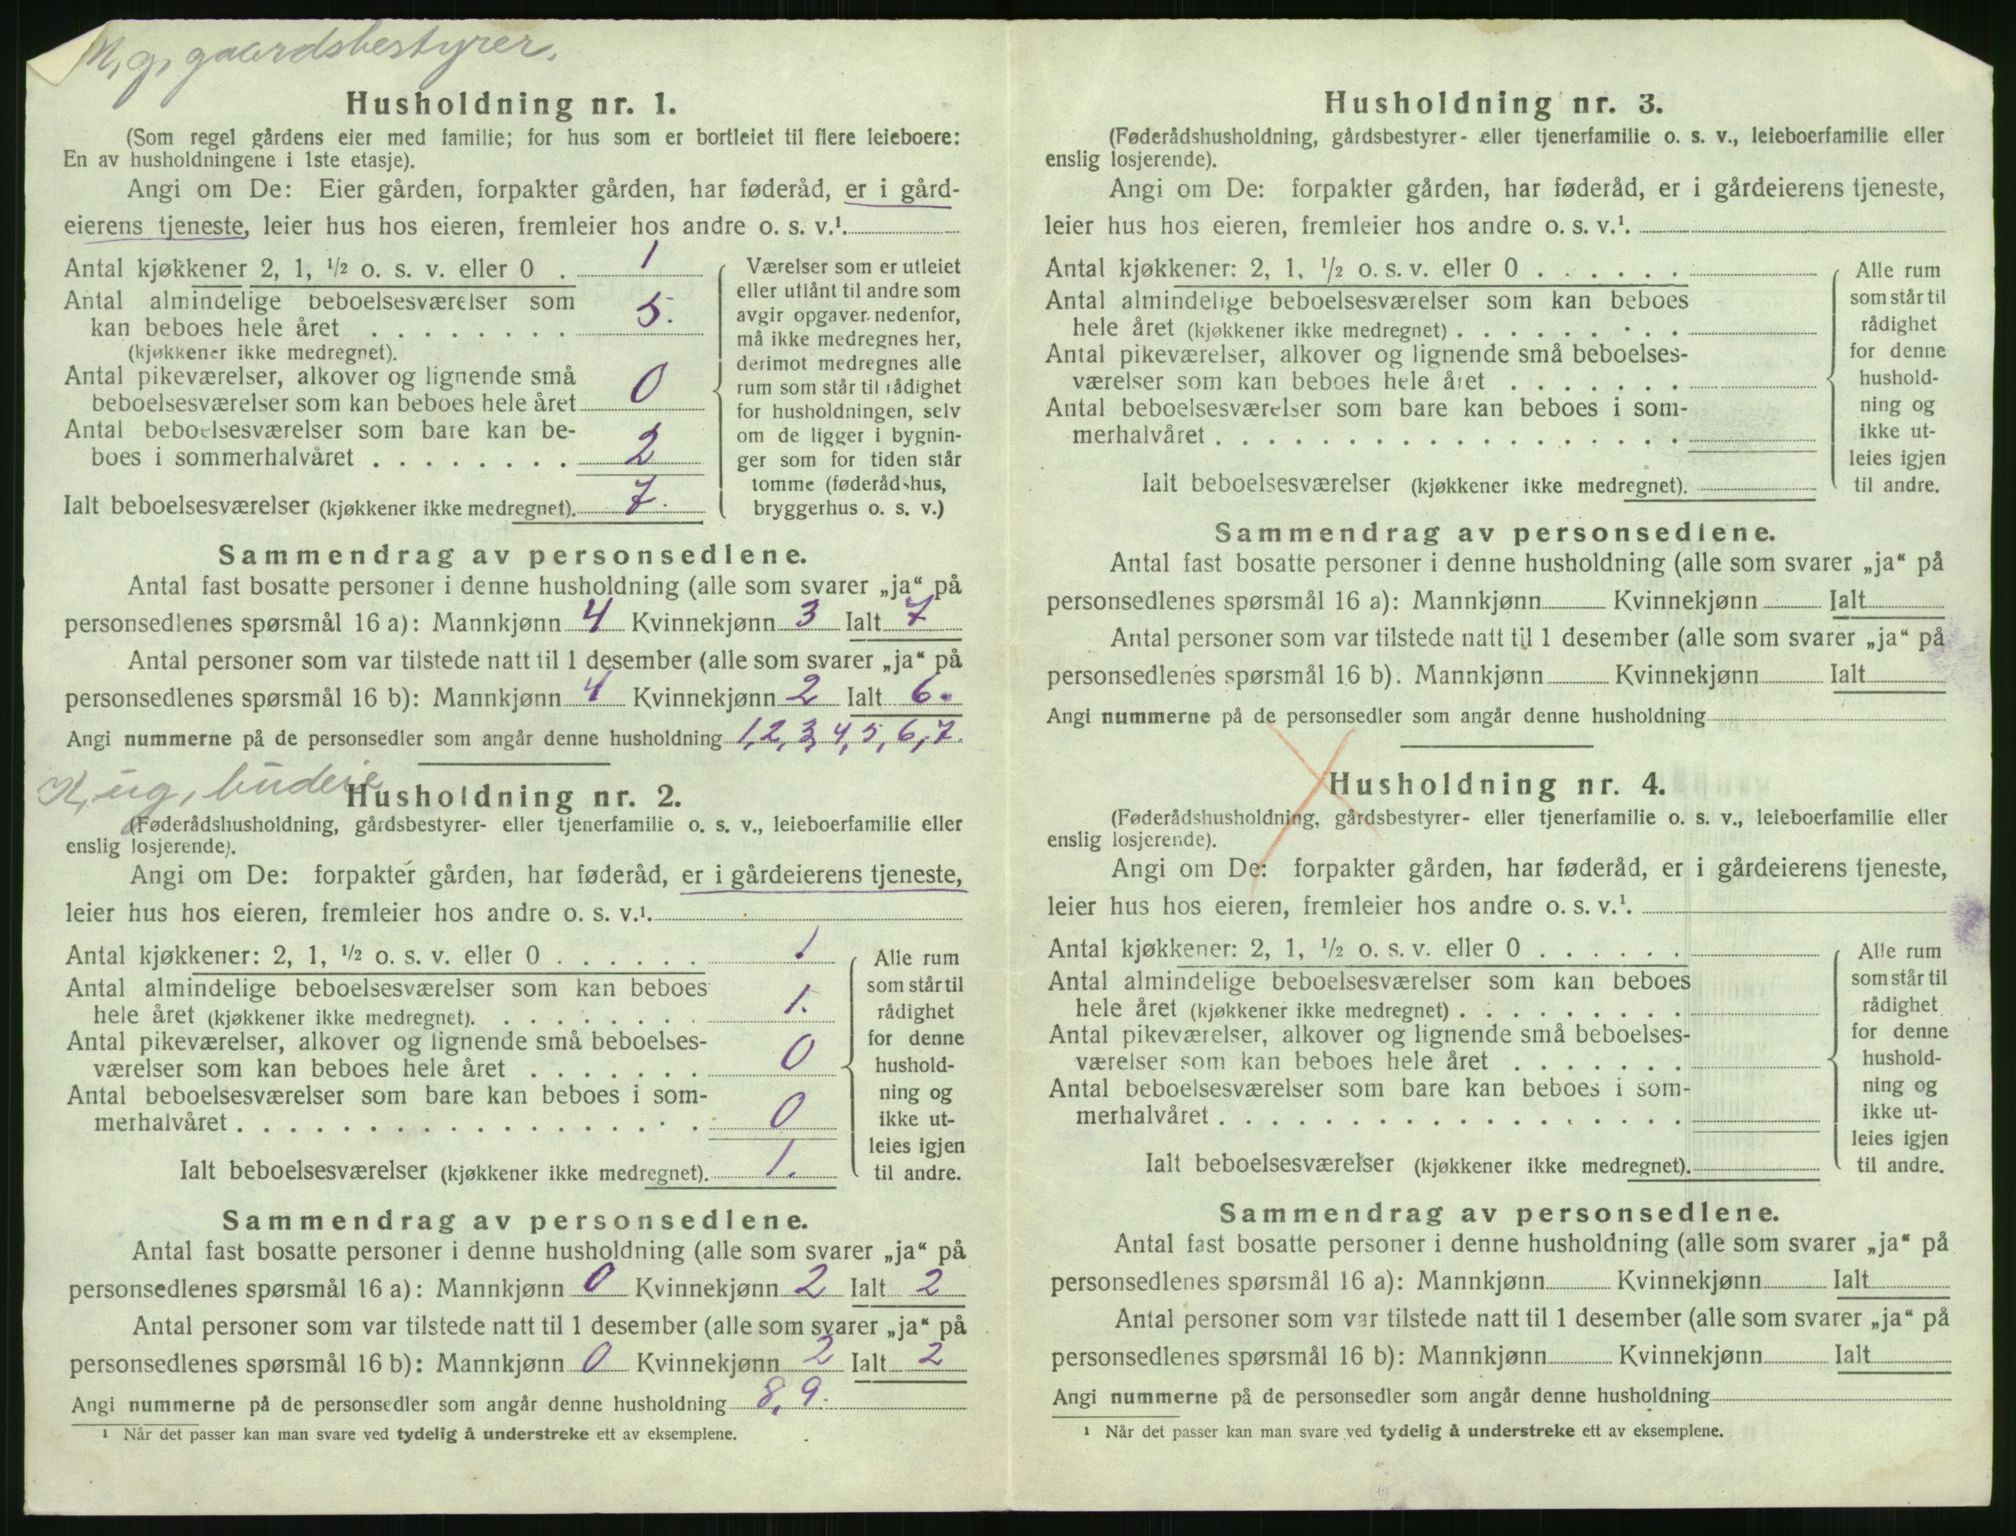 M, g, gaardsbestyrer.
Husholdning nr. 1.
(Som regel gårdens eier med familie; for hus som er bortleiet til flere leieboere:
En av husholdningene i 1ste etasje).
Angi om De: Eier gården, forpakter gården, har føderåd, er i gård-
eierens tjeneste, leier hus hos eieren, fremleier hos andre o. s. v.¹.
Antal kjøkkener 2, 1, ½ o. s. v. eller 0 . 1
Antal almindelige beboelsesværelser som
kan beboes hele året . . . . . . . . 5.
(kjøkkener ikke medregnet).
Antal pikeværelser, alkover og lignende små
beboelsesværelser som kan beboes hele året 0
Antal beboelsesværelser som bare kan be-
boes i sommerhalvåret . . . . . . . . 2
Ialt beboelsesværelser (kjøkkener ikke medregnet). 7.
Værelser som er utleiet
eller utlånt til andre som
avgir opgaver nedenfor,
må ikke medregnes her,
derimot medregnes alle
rum som står til rådighet
for husholdningen, selv
om de ligger i bygnin-
ger som for tiden står
tomme (føderådshus,
bryggerhus o. s. v.)
Sammendrag av personsedlene.
Antal fast bosatte personer i denne husholdning (alle som svarer „ja“ på
personsedlenes spørsmål 16 a): Mannkjønn 4 Kvinnekjønn 3 Ialt 7
Antal personer som var tilstede natt til 1 desember (alle som svarer „ja“ på
personsedlenes spørsmål 16 b): Mannkjønn 4 Kvinnekjønn 2 Ialt 6.
Angi nummerne på de personsedler som angår denne husholdning 1, 2, 3, 4, 5, 6, 7.
K, ug, budeie
Husholdning nr. 2.
(Føderådshusholdning, gårdsbestyrer- eller tjenerfamilie o. s. v., leieboerfamilie eller
enslig losjerende).
Angi om De: forpakter gården, har føderåd, er i gårdeierens tjeneste,
leier hus hos eieren, fremleier hos andre o. s. v.¹.
Antal kjøkkener: 2, 1, ½ o. s. v. eller 0 . . . . . . 1
Antal almindelige beboelsesværelser som kan beboes
hele året (kjøkkener ikke medregnet). . . . . . . . . 1.
Antal pikeværelser, alkover og lignende små beboelses-
værelser som kan beboes hele året . . . . . . . 0
Antal beboelsesværelser som bare kan beboes i som-
merhalvåret . . . . . . . . . . . . . . . . . . 0
Ialt beboelsesværelser (kjøkkener ikke medregnet). 1.
Alle rum
som står til
rådighet
for denne
hushold-
ning og
ikke ut-
leies igjen
til andre.
Sammendrag av personsedlene.
Antal fast bosatte personer i denne husholdning (alle som svarer „ja“ på
personsedlenes spørsmål 16 a): Mannkjønn 0 Kvinnekjønn 2 Ialt 2
Antal personer som var tilstede natt til 1 desember (alle som svarer „ja“ på
personsedlenes spørsmål 16 b): Mannkjønn 0 Kvinnekjønn 2 Ialt 2
Angi nummerne på de personsedler som angår denne husholdning 8, 9.
¹ Når det passer kan man svare ved tydelig å understreke ett av eksemplene.
Husholdning nr. 3.
(Føderådshusholdning, gårdsbestyrer- eller tjenerfamilie o. s. v., leieboerfamilie eller
enslig losjerende).
Angi om De: forpakter gården, har føderåd, er i gårdeierens tjeneste,
leier hus hos eieren, fremleier hos andre o. s. v.¹.
Antal kjøkkener: 2, 1, ½ o. s. v. eller 0 . . . . . .
Antal almindelige beboelsesværelser som kan beboes
hele året (kjøkkener ikke medregnet) . . . . . . . . .
Antal pikeværelser, alkover og lignende små beboelses-
værelser som kan beboes hele året . . . . . . .
Antal beboelsesværelser som bare kan beboes i som-
merhalvåret . . . . . . . . . . . . . . . . . .
Ialt beboelsesværelser (kjøkkener ikke medregnet).
Alle rum
som står til
rådighet
for denne
hushold-
ning og
ikke ut-
leies igjen
til andre.
Sammendrag av personsedlene.
Antal fast bosatte personer i denne husholdning (alle som svarer „ja“ på
personsedlenes spørsmål 16 a): Mannkjønn Kvinnekjønn Ialt
Antal personer som var tilstede natt til 1 desember (alle som svarer „ja“ på
personsedlenes spørsmål 16 b). Mannkjønn Kvinnekjønn Ialt
Angi nummerne på de personsedler som angår denne husholdning
Husholdning nr. 4.
(Føderådshusholdning, gårdsbestyrer- eller tjenerfamilie o. s. v., leieboerfamilie eller
enslig losjerende).
Angi om De: forpakter gården, har føderåd, er i gårdeierens tjeneste,
leier hus hos eieren, fremleier hos andre o. s. v.¹.
Antal kjøkkener: 2, 1, ½ o. s. v. eller 0 . . . . . .
Antal almindelige beboelsesværelser som kan beboes
hele året (kjøkkener ikke medregnet) . . . . . . . . .
Antal pikeværelser, alkover og lignende små beboelses-
værelser som kan beboes hele året . . . . . . .
Antal beboelsesværelser som bare kan beboes i som-
merhalvåret . . . . . . . . . . . . . . . . . .
Ialt beboelsesværelser (kjøkkener ikke medregnet).
Alle rum
som står til
rådighet
for denne
hushold-
ning og
ikke ut-
leies igjen
til andre.
Sammendrag av personsedlene.
Antal fast bosatte personer i denne husholdning (alle som svarer „ja“ på
personsedlenes spørsmål 16 a): Mannkjønn Kvinnekjønn Ialt
Antal personer som var tilstede natt til 1 desember (alle som svarer „ja“ på
personsedlenes spørsmål 16 b): Mannkjønn Kvinnekjønn Ialt
Angi nummerne på de personsedler som angår denne husholdning
¹ Når det passer kan man svare ved tydelig å understreke ett av eksemplene.